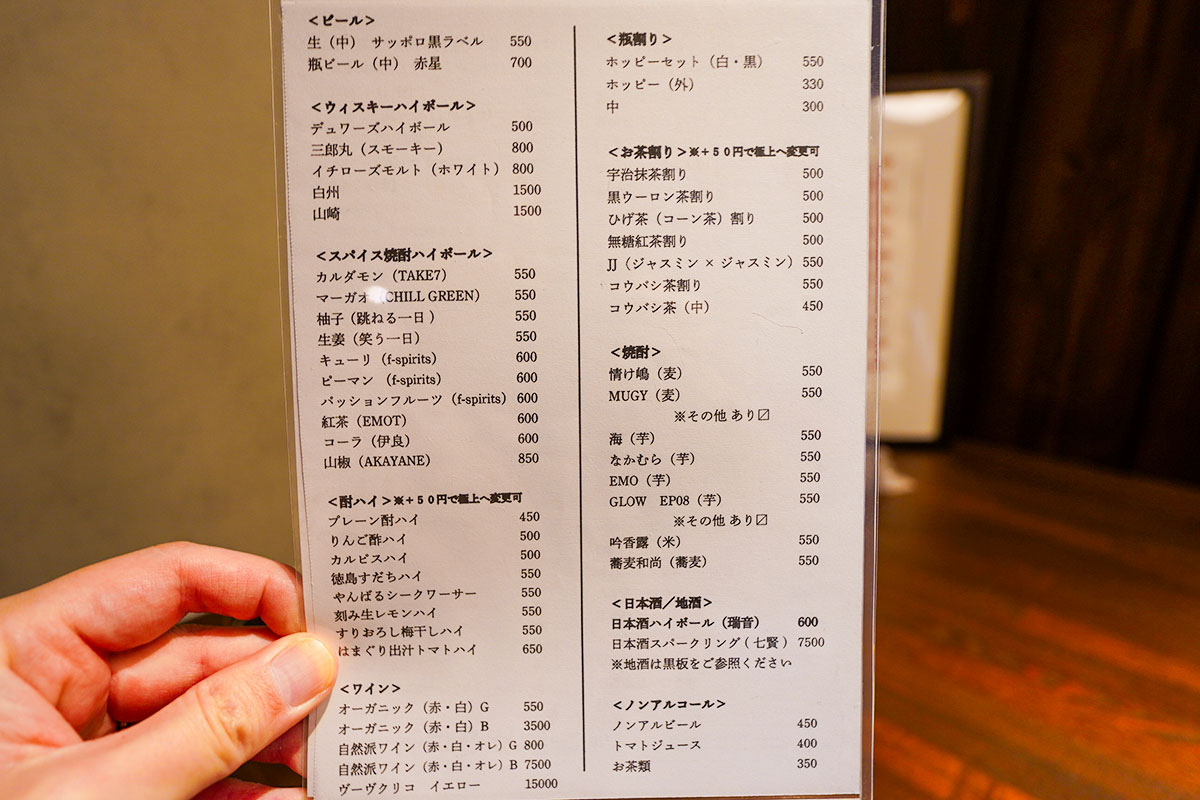 ＜ビール＞
生（中） サッポロ黒ラベル 550
瓶ビール（中） 赤星 700
＜ウィスキーハイボール＞
デュワーズハイボール 500
三郎丸（スモーキー） 800
イチローズモルト（ホワイト） 800
白州 1500
山崎 1500
＜スパイス焼酎ハイボール＞
カルダモン（TAKE7） 550
マーガオ（CHILL GREEN） 550
柚子（跳ねる一日） 550
生姜（笑う一日） 550
キューリ（f-spirits） 600
ピーマン （f-spirits） 600
パッションフルーツ（f-spirits） 600
紅茶（EMOT） 600
コーラ（伊良） 600
山椒（AKAYANE） 850
＜酎ハイ＞※＋５０円で極上へ変更可
プレーン酎ハイ 450
りんご酢ハイ 500
カルピスハイ 500
徳島すだちハイ 550
やんばるシークワーサー 550
刻み生レモンハイ 550
すりおろし梅干しハイ 550
はまぐり出汁トマトハイ 650
＜ワイン＞
オーガニック（赤・白）G 550
オーガニック（赤・白）B 3500
自然派ワイン（赤・白・オレ）G 800
自然派ワイン（赤・白・オレ）B 7500
ヴーヴクリコ イエロー 15000
＜瓶割り＞
ホッピーセット（白・黒） 550
ホッピー（外） 330
中 300
＜お茶割り＞※＋５０円で極上へ変更可
宇治抹茶割り 500
黒ウーロン茶割り 500
ひげ茶（コーン茶）割り 500
無糖紅茶割り 500
JJ（ジャスミン × ジャスミン） 550
コウバシ茶割り 550
コウバシ茶（中） 450
＜焼酎＞
情け嶋（麦） 550
MUGY（麦） 550
※その他 あり〼
海（芋） 550
なかむら（芋） 550
EMO（芋） 550
GLOW EP08（芋） 550
※その他 あり〼
吟香露（米） 550
蕎麦和尚（蕎麦） 550
＜日本酒／地酒＞
日本酒ハイボール（瑞音） 600
日本酒スパークリング（七賢） 7500
※地酒は黒板をご参照ください
＜ノンアルコール＞
ノンアルビール 450
トマトジュース 400
お茶類 350